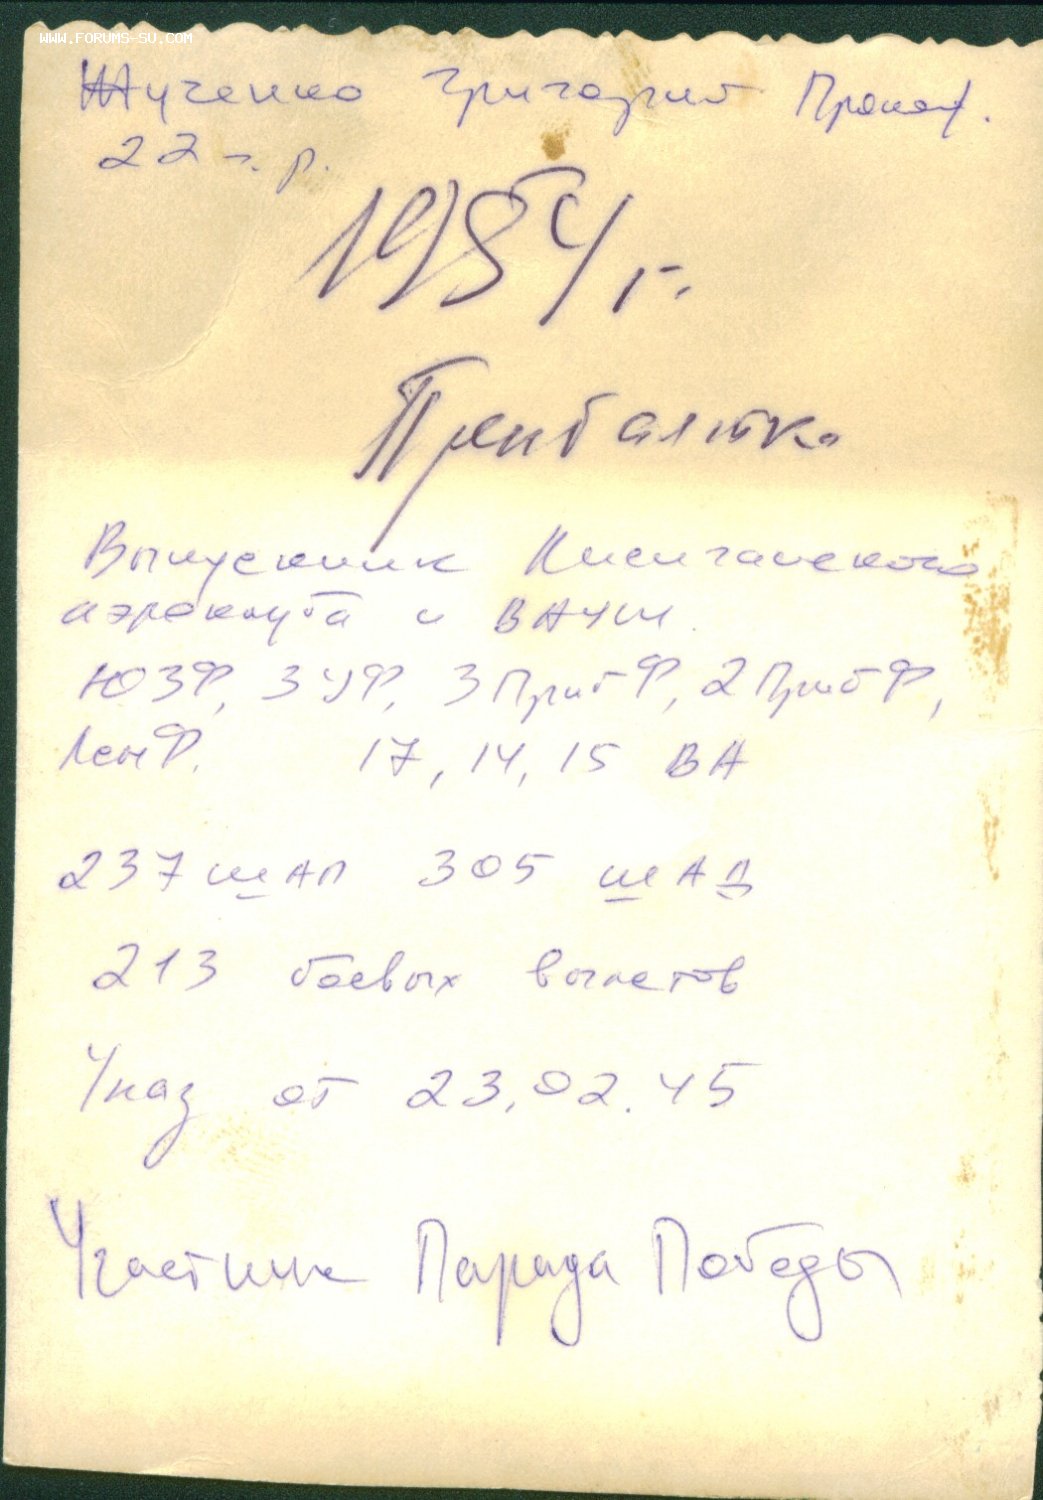 WWW.FORUMS-SU.COM
Жученко Григорий Прокоф.
22 г.р.
1954 г.
Прибалтика
Выпускник Лисичанского
аэроклуба и ВАУШ
ЮЗФ, 3 УФ, 3 Приб Ф, 2 Приб Ф,
Лен Ф. 17, 14, 15 ВА
237 шАП 305 шАД
213 боевых вылетов
Указ от 23.02.45
Участник Парада Победы